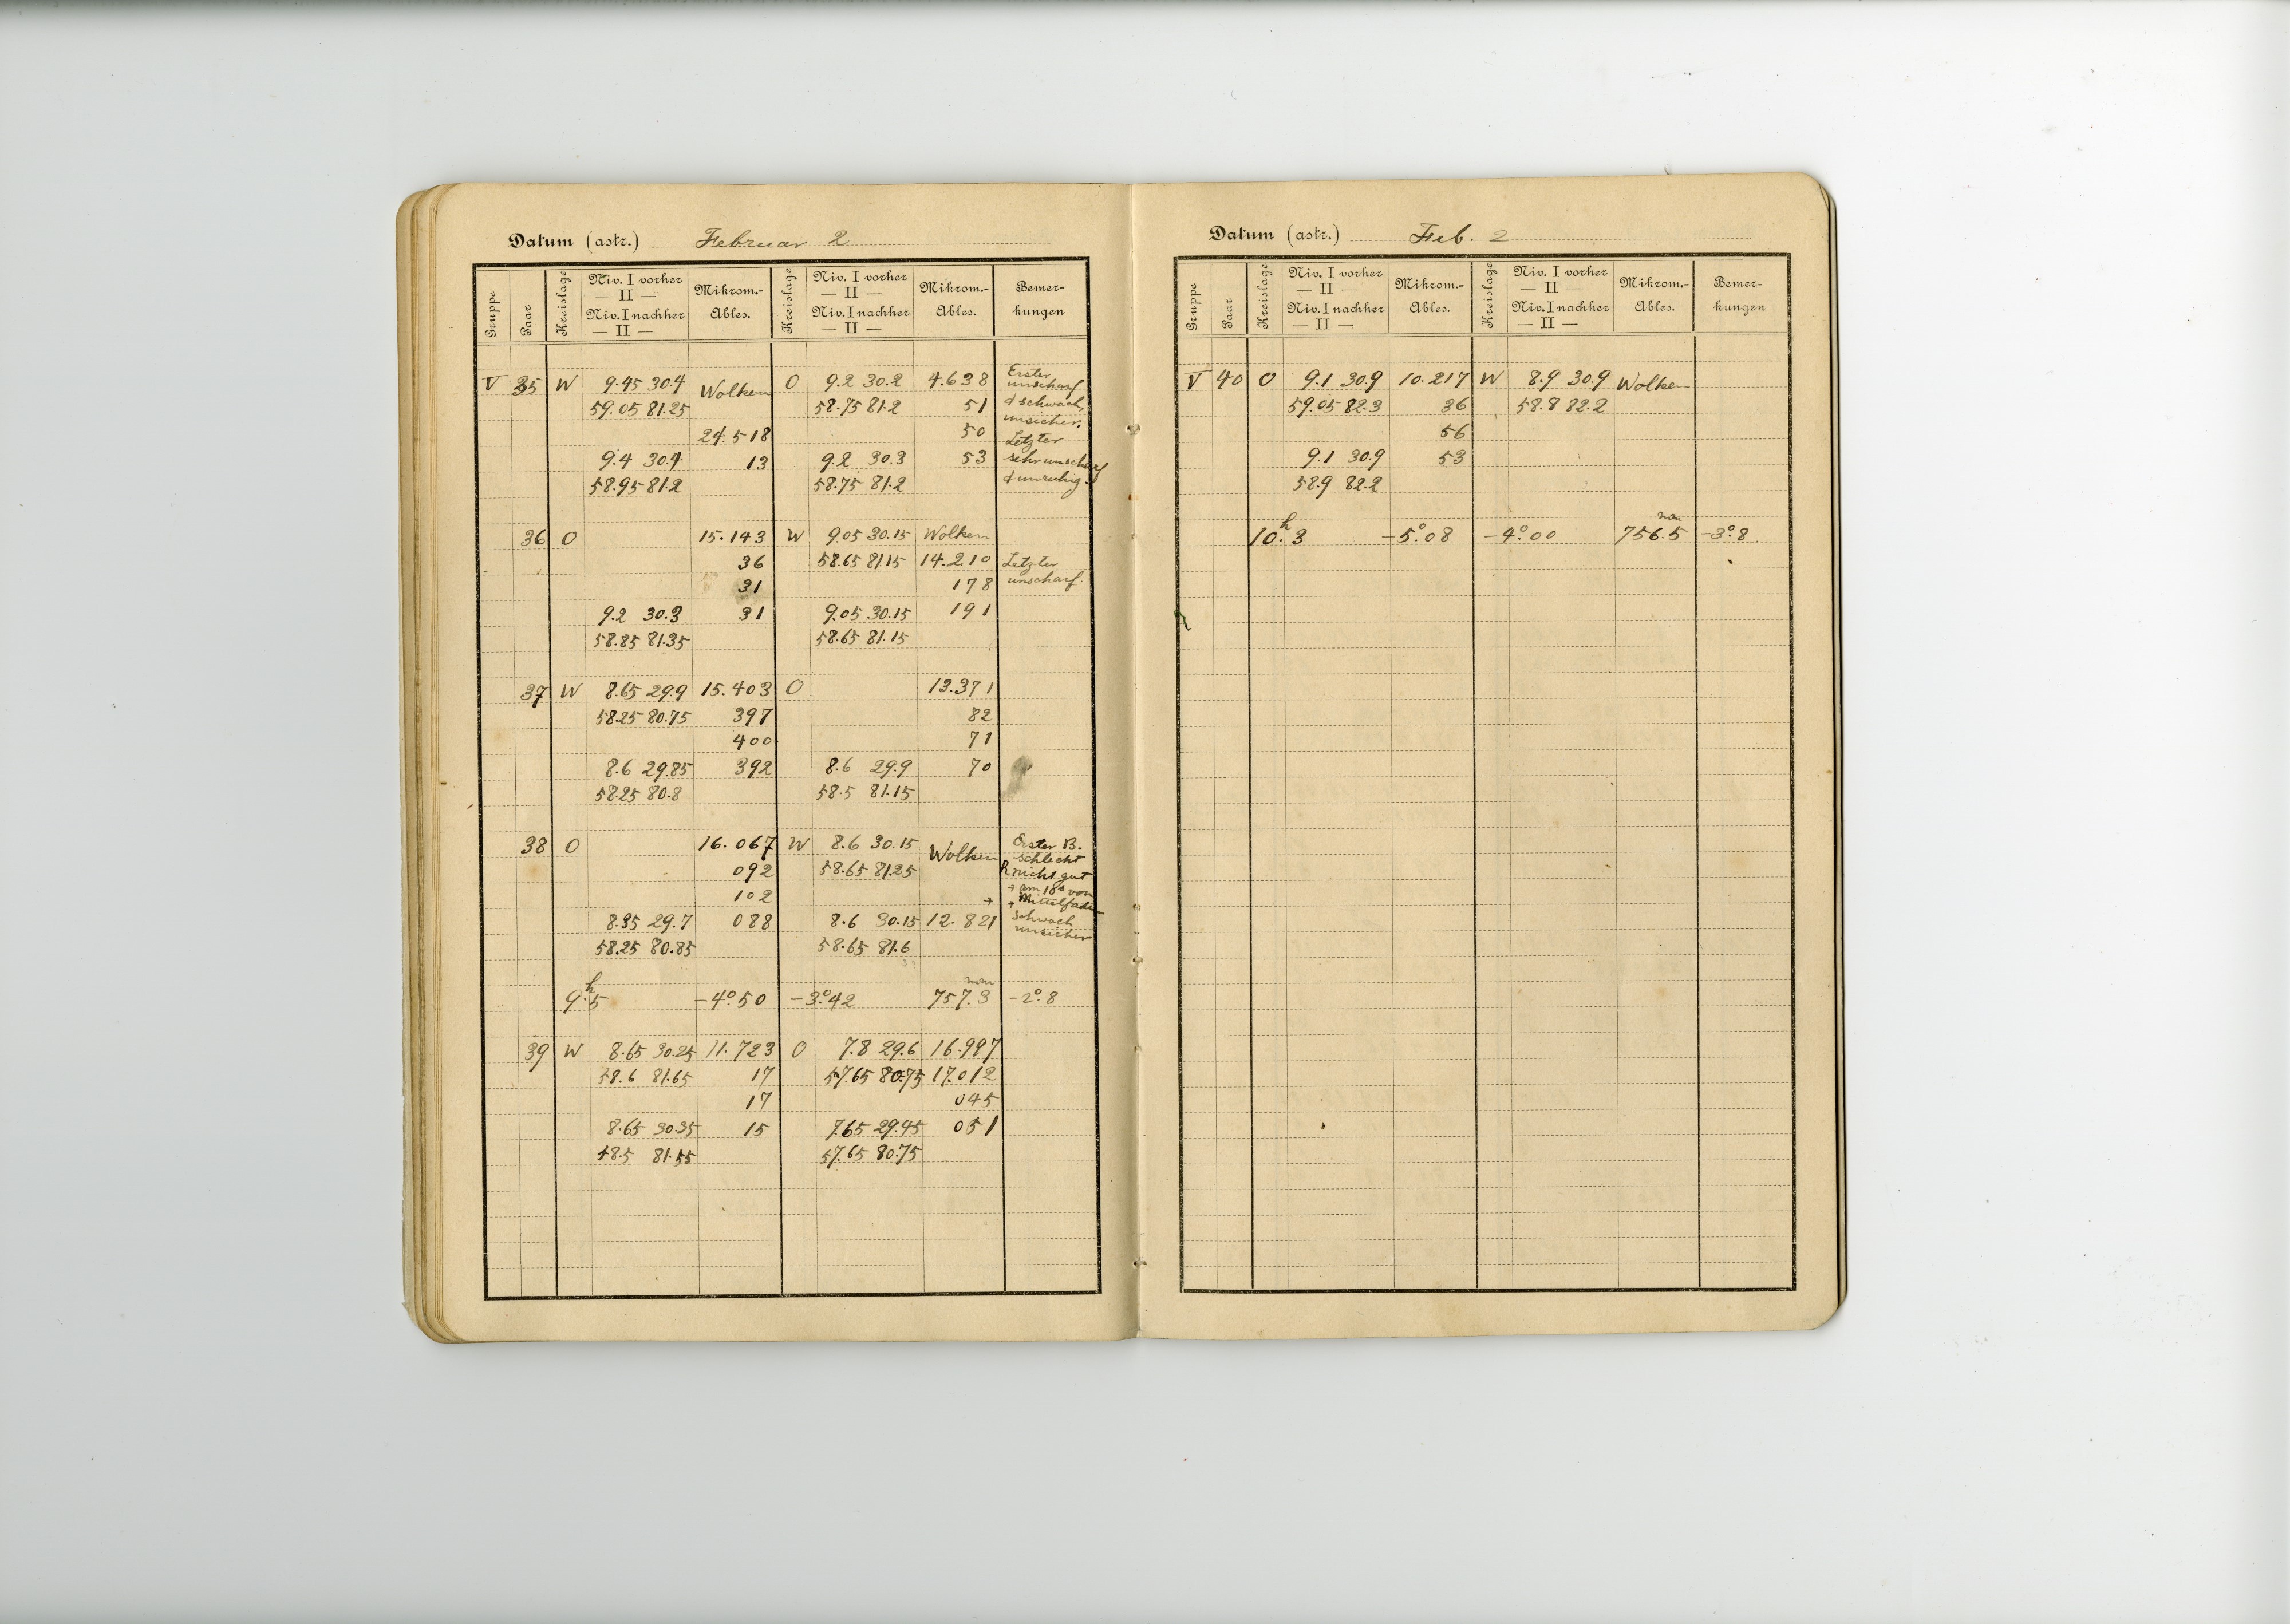 Datum (astr.) Februar 2
Gruppe Paar Kreislage Niv. I vorher Mikrom.- Kreislage Niv. I vorher Mikrom.- Bemer-
— II — — II —
Niv. I nachher Ables. Niv. I nachher Ables. kungen
— II — — II —
V 35 W 9.45 30.4 Wolken O 9.2 30.2 4.638 Erster unscharf
59.05 81.25 58.75 81.2 51 & schwach,
24.518 50 unsicher. Letzter
9.4 30.4 13 9.2 30.3 53 sehr unscharf
58.95 81.2 58.75 81.2 & unruhig.
36 O 15.143 W 9.05 30.15 Wolken
36 58.65 81.15 14.210 Letzter
31 178 unscharf.
9.2 30.3 31 9.05 30.15 191
58.85 81.35 58.65 81.15
37 W 8.65 29.9 15.403 O 13.371
58.25 80.75 397 82
400 71
8.6 29.85 392 8.6 29.9 70
58.25 80.8 58.5 81.15
38 O 16.067 W 8.6 30.15 Wolken Erster B. schlecht
092 58.65 81.25 nicht gut
102 am 18s von Mittelfaden
8.35 29.7 088 8.6 30.15 12.821 schwach
58.25 80.85 58.65 81.6 unsicher
9h.5 -4°.50 -3°.42 757.3 mm -2°.8
39 W 8.65 30.25 11.723 O 7.8 29.6 16.997
58.6 81.65 17 57.65 80.75 17.012
17 045
8.65 30.35 15 7.65 29.45 051
58.5 81.55 57.65 80.75
Datum (astr.) Feb. 2
Gruppe Paar Kreislage Niv. I vorher Mikrom.- Kreislage Niv. I vorher Mikrom.- Bemer-
— II — — II —
Niv. I nachher Ables. Niv. I nachher Ables. kungen
— II — — II —
V 40 O 9.1 30.9 10.217 W 8.9 30.9 Wolken
59.05 82.3 36 58.8 82.2
56
9.1 30.9 53
58.9 82.2
10h.3 -5°.08 -4°.00 756.5 mm -3°.8